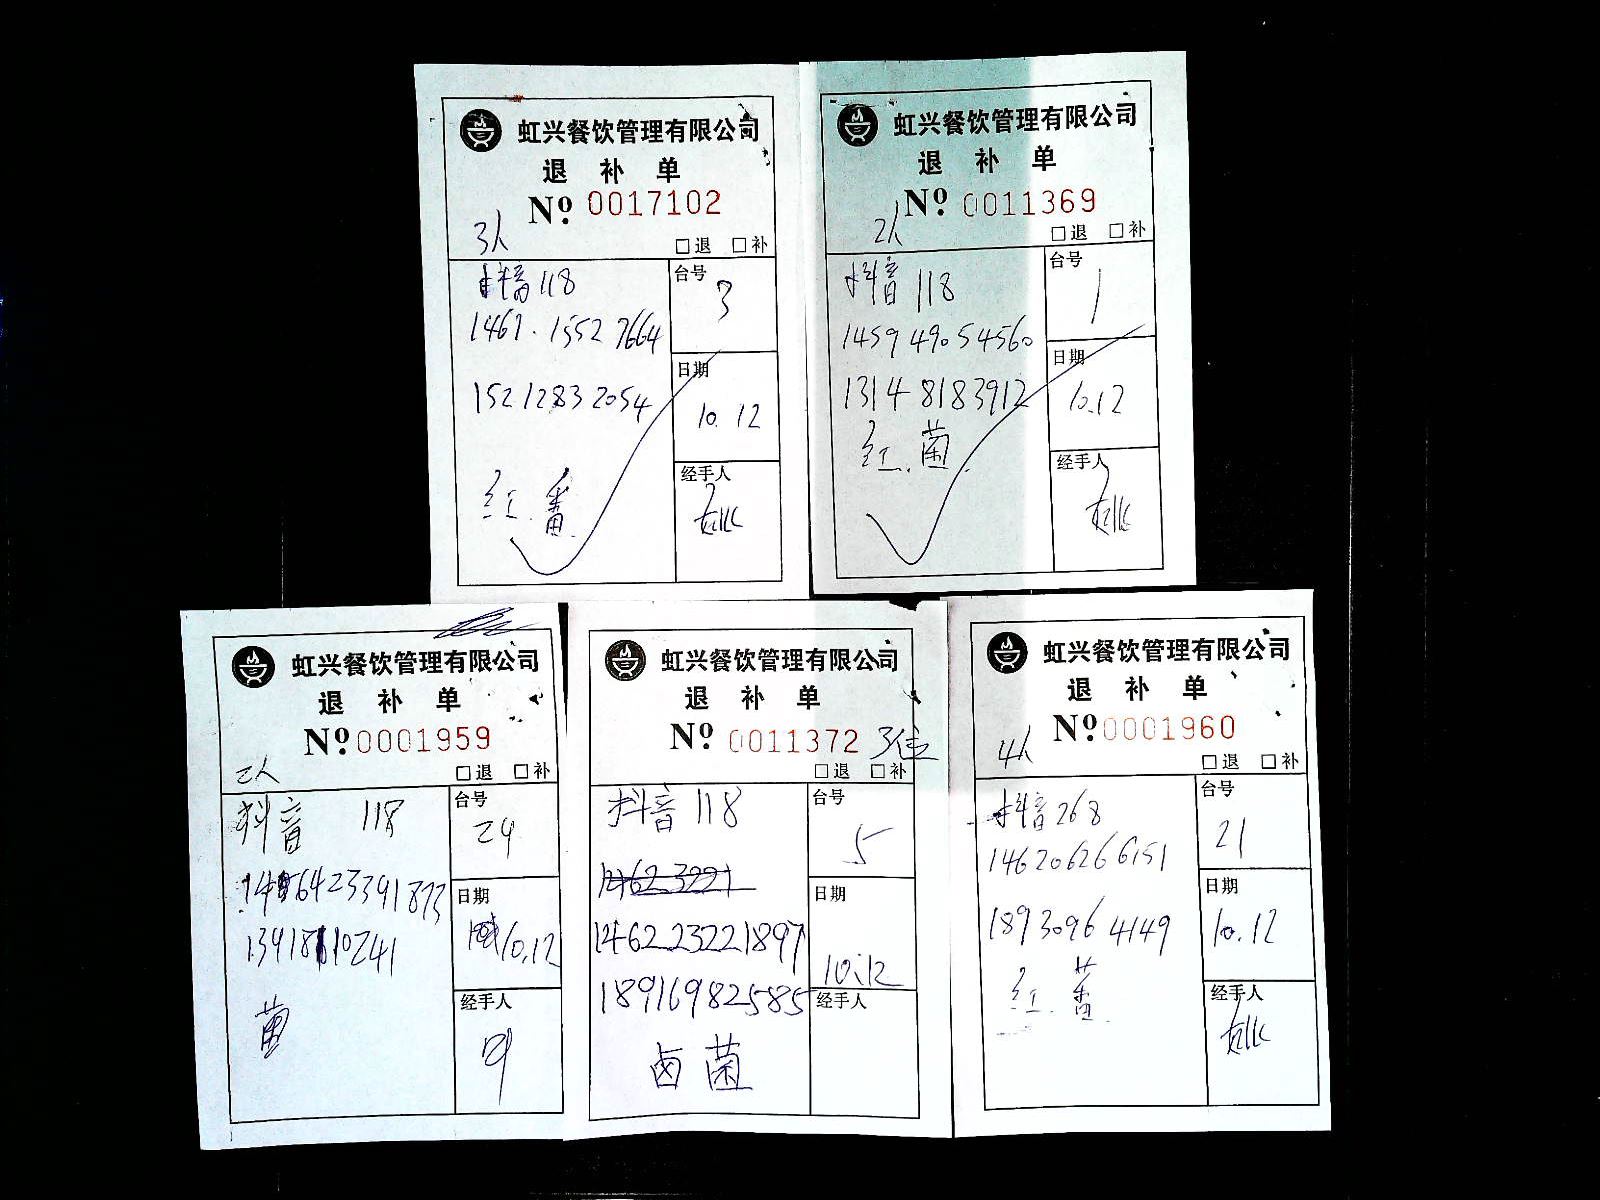 虹兴餐饮管理有限公司
退 补 单
Nº 0017102
3人
□退 □补
抖音118
1467.15527664
15212832054
红.番
台号
3
日期
10.12
经手人
虹兴餐饮管理有限公司
退 补 单
Nº 0011369
2人
□退 □补
抖音118
1459 4905 4560
1314 8183912
红.菌.
台号
1
日期
10.12
经手人
虹兴餐饮管理有限公司
退 补 单
Nº 0001959
2人
□退 □补
抖音 118
菌
台号
24
日期
10.12
经手人
虹兴餐饮管理有限公司
退 补 单
Nº 0011372
3位
□退 □补
抖音118
146223221897
18916982585
卤菌
台号
5
日期
10.12
经手人
虹兴餐饮管理有限公司
退 补 单
Nº 0001960
4人
□退 □补
抖音268
146206266151
1893096 4149
红.番.
台号
21
日期
10.12
经手人